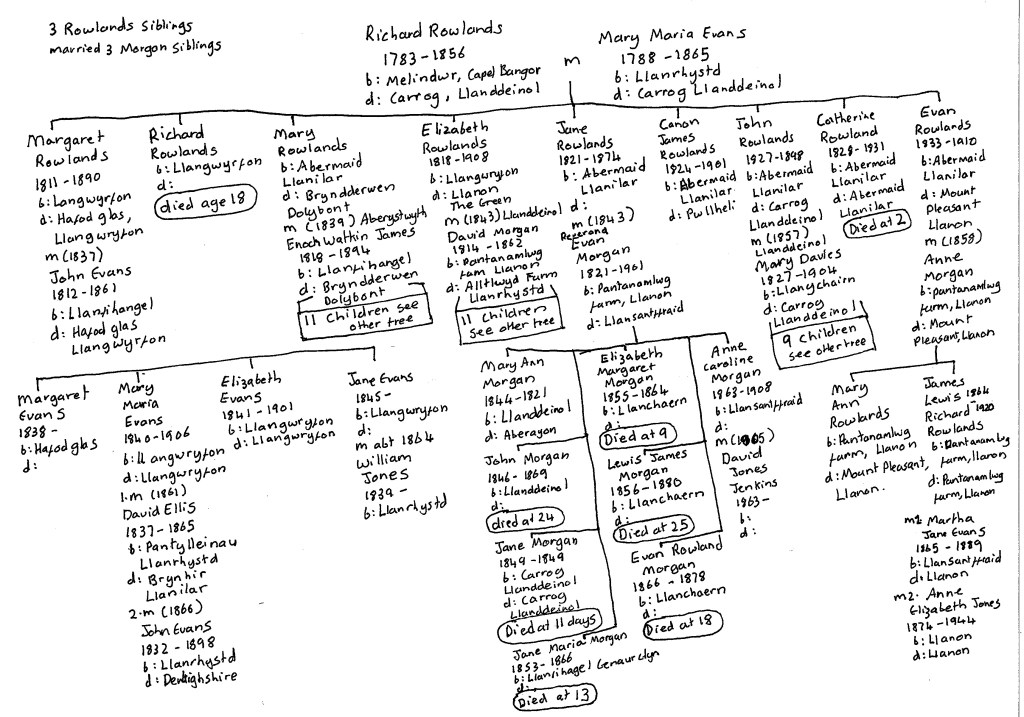 3 Rowlands Siblings
married 3 Morgan Siblings
Richard Rowlands
1783-1856
b: Melindwr, Capel Bangor
d: Carrog, Llanddeinol
m
Mary Maria Evans
1788-1865
b: Llanrhystd
d: Carrog Llanddeinol
Margaret
Rowlands
1811-1890
b: Langwyrfon
d: Hafod glas,
Llangwyrfon
m (1837)
John Evans
1812-1861
b: Llanfihangel
d: Hafod glas
Llangwyrfon
Richard
Rowlands
b: Llangwyrfon
d:
died age 18
Mary
Rowlands
b: Abermaid
Llanilar
d: Bryndderwen
Dolybont
m (1839) Aberystwyth
Enoch Watkin James
1818-1894
b: Llanfihangel
d: Bryndderwen
Dolybont
11 Children see
other tree
Elizabeth
Rowlands
1818-1908
b: Llangwyrfon
d: Llanon
The Green
m (1843) Llanddeinol
David Morgan
1814-1862
b: Pantanamlwg
farm Llanon
d: Alltlwyd Farm
Llanrhystd
11 Children
see other tree
Jane
Rowlands
1821-1874
b: Abermaid
Llanilar
d:
m (1843)
Reverand
Evan
Morgan
1821-1901
b: Pantanamlwg
farm, Llanon
d: Llansantffraid
Canon
James
Rowlands
1824-1901
b: Abermaid
Llanilar
d: Pwllheli
John
Rowlands
1827-1898
b: Abermaid
Llanilar
d: Carrog
Llanddeinol
m (1857)
Llanddeinol
Mary Davies
1827-1904
b: Llangchairn
d: Carrog
Llanddeinol
9 children
see other tree
Catherine
Rowland
1828-1831
b: Abermaid
Llanilar
d: Abermaid
Llanilar
Died at 2
Evan
Rowlands
1833-1910
b: Abermaid
Llanilar
d: Mount
Pleasant
Llanon
m (1858)
Anne
Morgan
b: pantanamlwg
farm, Llanon
d: Mount
Pleasant, Llanon
Margaret
Evans
1838-
b: Hafod glas
d:
Mary
Maria
Evans
1840-1906
b: Llangwyrfon
d: Llangwyrfon
1.m (1861)
David Ellis
1837-1865
b: Pantylleinau
Llanrhystd
d: Brynhir
Llanilar
2.m (1866)
John Evans
1832-1898
b: Llanrhystd
d: Denbighshire
Elizabeth
Evans
1841-1901
b: Llangwyrfon
d: Llangwyrfon
Jane Evans
1845-
b: Llangwyrfon
d:
m abt 1864
William
Jones
1839-
b: Llanrhystd
Mary Ann
Morgan
1844-1821
b: Llanddeinol
d: Aberayon
John Morgan
1846-1869
b: Llanddeinol
d:
died at 24
Jane Morgan
1849-1849
b: Carrog
Llanddeinol
d: Carrog
Llanddeinol
Died at 11 days
Jane Maria Morgan
1853-1866
b: Llanfihagel Genaurclyn
d:
Died at 13
Elizabeth
Margaret
Morgan
1855-1864
b: Llanchaern
d:
Died at 9
Lewis James
Morgan
1856-1880
b: Llanchaern
d:
Died at 25
Evan Rowland
Morgan
1866-1878
b: Llanchaern
d:
Died at 18
Anne
Caroline
Morgan
1863-1908
b: Llansantffraid
d:
David
Jones
Jenkins
1863-
b:
d:
Mary
Ann
Rowlards
b: Pantanamlwg
farm, Llanon
d: Mount Pleasant,
Llanon.
James
Lewis 1864
Richard 1920
Rowlands
b: Pantanamlwg
farm, llanon
d: Pantanamlwg
farm, Llanon
m1: Martha
Jane Evans
1865-1889
b: Llansantffraid
d: Llanon
m2. Anne
Elizabeth Jones
1874-1944
b: Llanon
d: Llanon